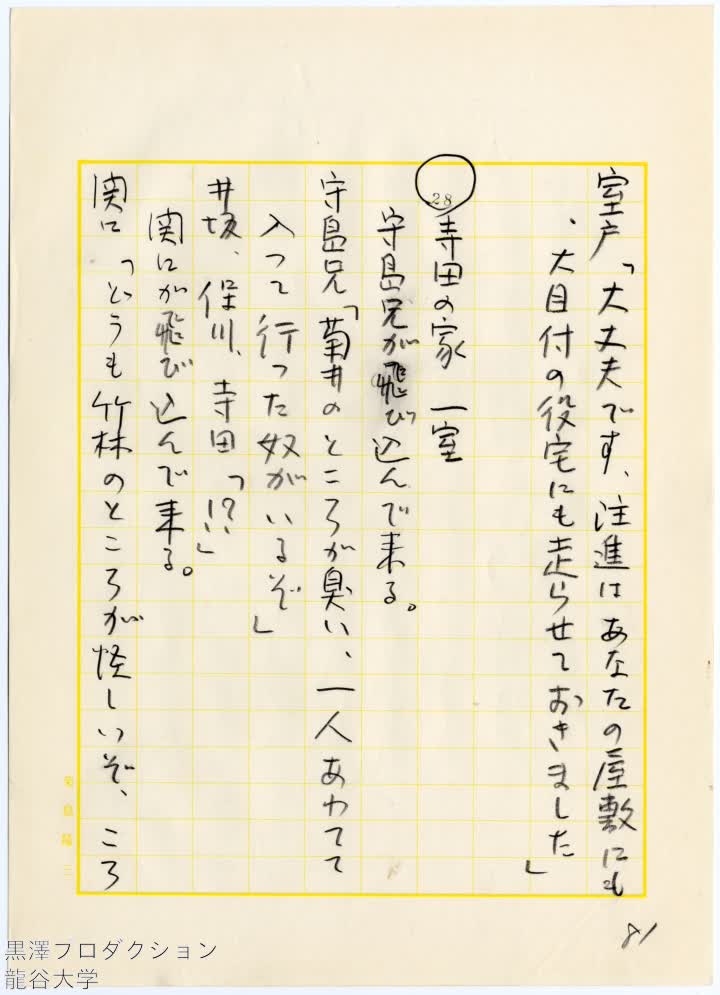 室戸「大丈夫です、注進はあなたの屋敷にも
、大目付の役宅にも走らせておきました」
28 寺田の家 一室
守島兄が飛び込んで来る。
守島兄「菊井のところが臭い、一人あわてて
入って行った奴がいるぞ」
井坂、保川、寺田「!?」
関口が飛び込んで来る。
関口「どうも竹林のところが怪しいぞ、ころ
81
黒澤プロダクション
龍谷大学